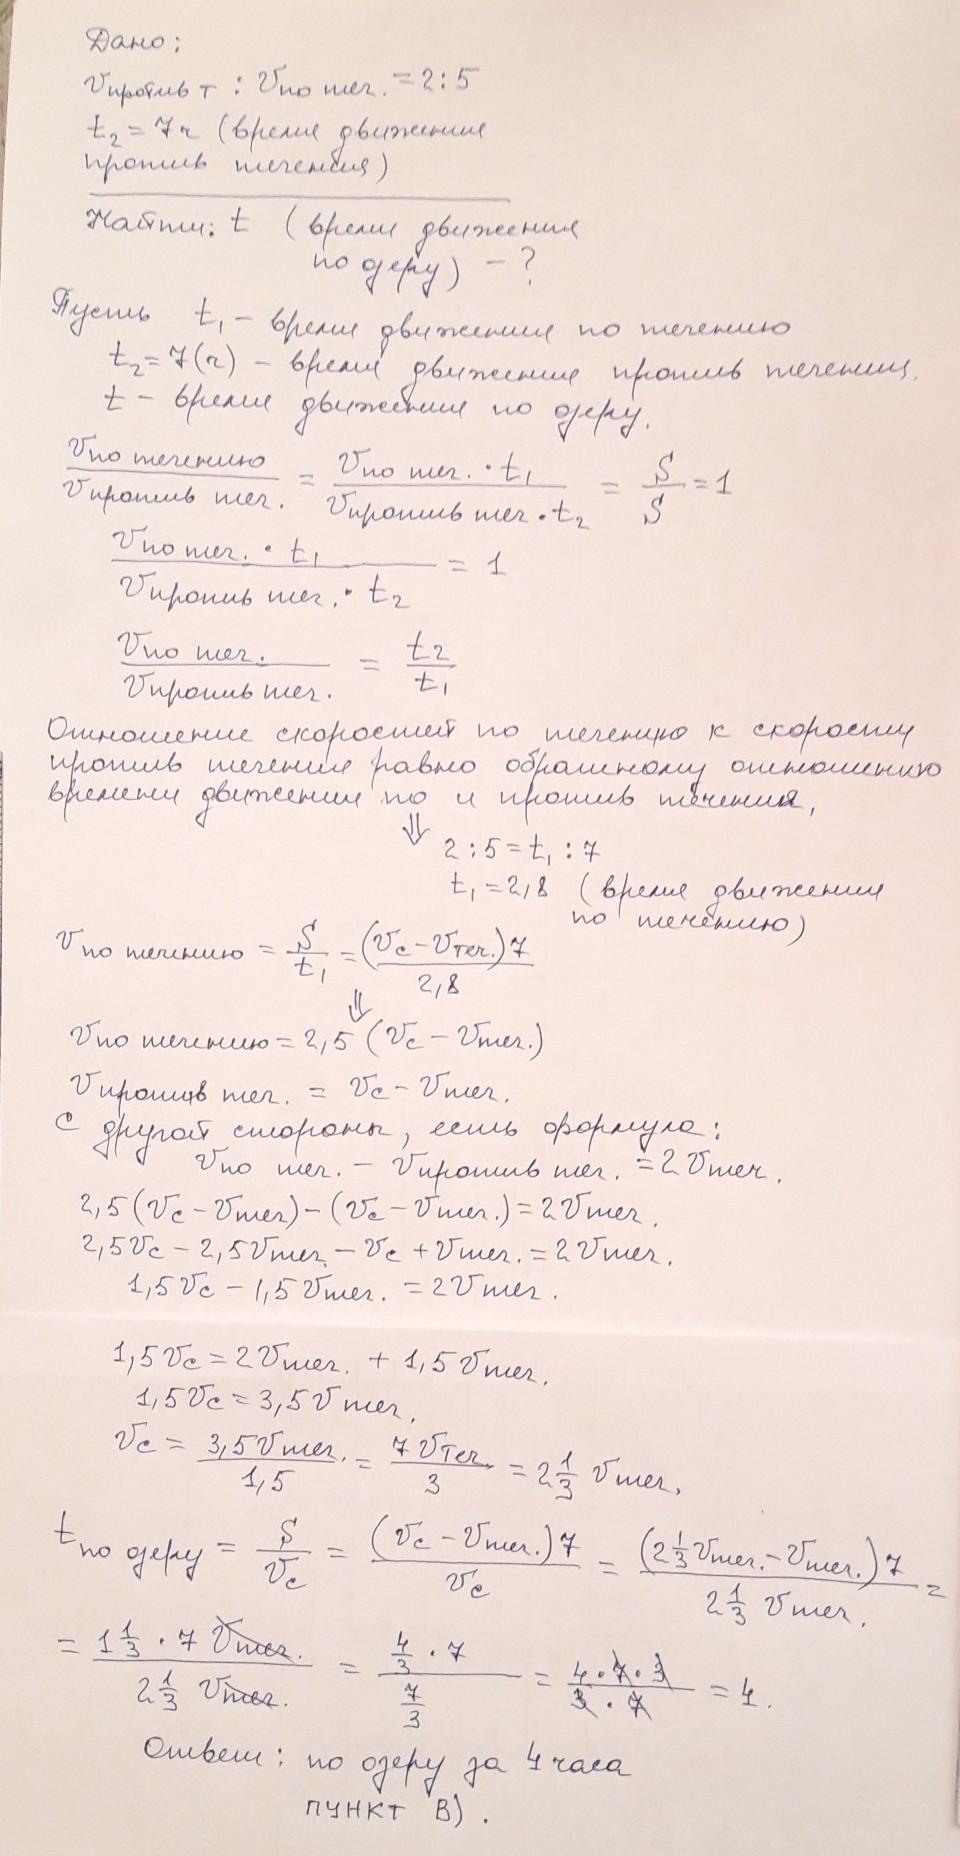 Дано:
Vпротив т : Vпо теч. = 2:5
t₂ = 7ч (время движения
против течения)
Найти: t (время движения
по озеру) – ?
Пусть t₁ – время движения по течению
t₂ = 7(ч) – время движения против течения.
t – время движения по озеру.
Vпо течению / Vпротив теч. = Vпо теч. · t₁ / Vпротив теч · t₂ = S/S = 1
Vпо теч. · t₁ / Vпротив теч. · t₂ = 1
Vпо теч. / Vпротив теч. = t₂/t₁
Отношение скоростей по течению к скорости
против течения равно обратному отношению
времени движения по и против течения,
⇓ 2:5 = t₁:7
t₁ = 2,8 (время движения
по течению)
Vпо течению = S/t₁ = (Vс – Vтеч.)7 / 2,8
⇓
Vпо течению = 2,5 (Vс – Vтеч.)
Vпротив теч. = Vс – Vтеч.
С другой стороны, есть формула:
Vпо теч. – Vпротив теч. = 2Vтеч.
2,5(Vс – Vтеч) – (Vс – Vтеч.) = 2Vтеч.
2,5Vс – 2,5Vтеч. – Vс + Vтеч. = 2Vтеч.
1,5Vс – 1,5Vтеч. = 2Vтеч.
1,5Vс = 2Vтеч. + 1,5Vтеч.
1,5Vс = 3,5Vтеч.
Vс = 3,5Vтеч. / 1,5 = 7Vтеч. / 3 = 2 1/3 Vтеч.
tпо озеру = S/Vс = (Vс – Vтеч.)7 / Vс = (2 1/3 Vтеч. – Vтеч.)7 / 2 1/3 Vтеч. =
= 1 1/3 · 7 Vтеч. / 2 1/3 Vтеч. = 4/3 · 7 / 7/3 = 4·7·3 / 3·7 = 4.
Ответ: по озеру за 4 часа
ПУНКТ В).